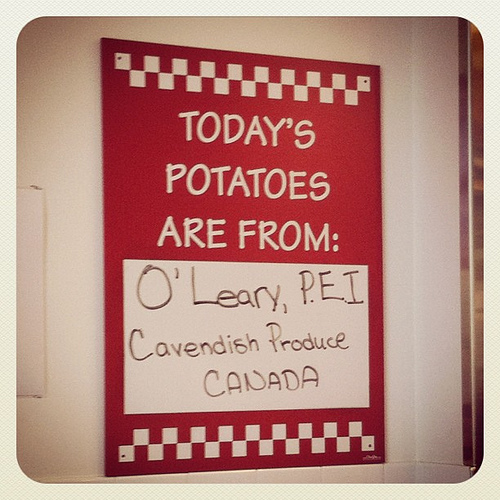 TODAY'S
POTATOES
ARE FROM:
O'Leary, P.E.I
Cavendish Produce
CANADA